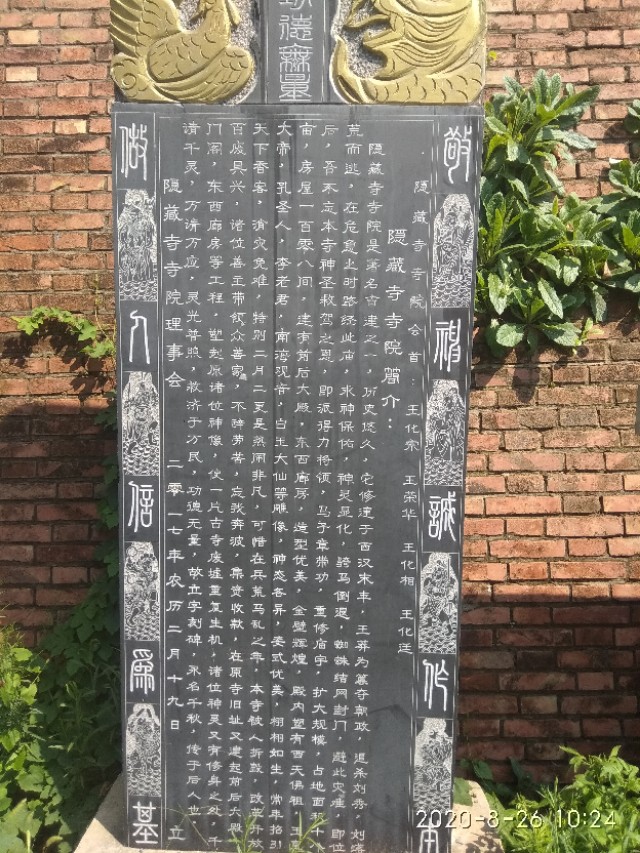 德無量
敬神誠作本
隐藏寺寺院会首：王化宗 王荣华 王化相 王化廷
隐藏寺寺院简介：
隐藏寺寺院是著名古建之一，历史悠久，它修建于西汉末年，王莽为篡夺朝政，追杀刘秀，刘秀
荒而逃，在危急之时路经此庙，求神保佑，神灵显化，骑马倒退，蜘蛛结网封门，避此灾难，即位
后，吾不忘本寺神圣救驾之恩，即派得力将领，马子章带功，重修庙宇，扩大规模，占地面积十八
亩，房屋一百零八间，建有前后大殿，东西廊房，造型优美，金壁辉煌，殿内塑有西天佛祖，玉皇
大帝，孔圣人，李老君，南海观音，白玉大仙等雕像，神态各异，姿式优美，栩栩如生，常年招引
天下香客，消灾免难，特别二月二更是热闹非凡，可惜在兵荒马乱之年，本寺被人折毁，改革开放
百废具兴，诸位善主带领众善家，不辞劳苦，忘我奔波，集资收款，在原寺旧址又建起前后大殿
门阁，东西廊房等工程，塑起原诸位神像，使一片古寺废墟重复生机，诸位神灵又有修身之处，千
请千灵，万请万应，灵光普照，救济于万民，功德无量，故立字刻碑，永名千秋，传于后人也 立
隐藏寺寺院理事会 二零一七年农历二月十九日
做人信為基
2020-8-26 10:24